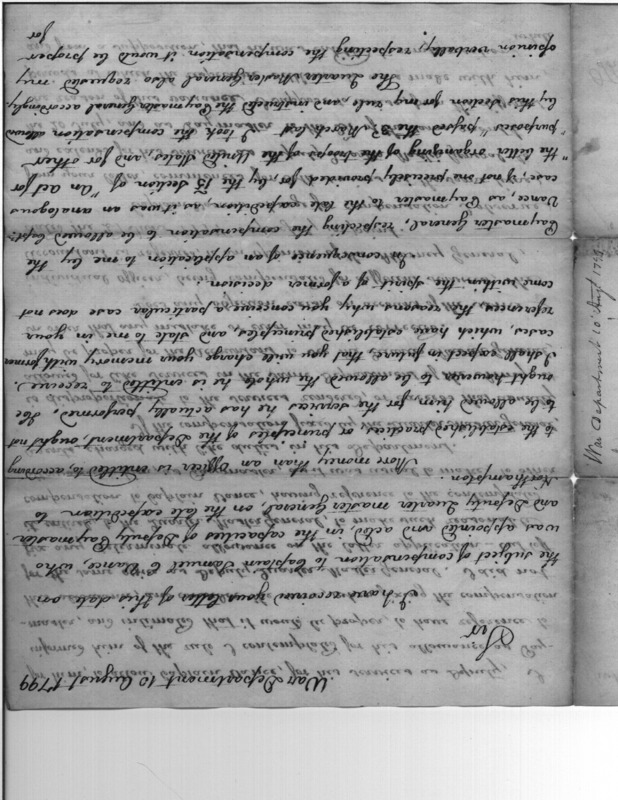 War Department 10 August 1799
Sir
I have received your letter of this date on
the subject of compensation to Captain Samuel C. Vance, who
was appointed and acted in the capacities of Deputy Paymaster
and Deputy Quarter Master General, on the late expedition to
Northampton.
More money than an Officer is entitled to, according
to the established practices, or principles of the Department ought not
to be allowed him, for the services he has actually performed, He
ought however to be allowed the whole he is entitled to receive.
I shall expect in future, that you will charge your memory with former
cases, which have established principles, and state to me in your
references, the reasons, why you conceive a particular case does not
come within the spirit of a former decision.
In consequence of an application to me by the
Paymaster General, respecting the compensation to be allowed Capt:
Vance, as Paymaster to the late expedition, as it was an analogous
case, if not one precisely provided for, by the 15 Section of "An Act for
"the better organizing of the troops of the United States, and for other
"purposes" passed the 3d March last I took the compensation allowed
by this Section for my rule, and instructed the Paymaster General accordingly
The Quarter Master General also requested my
opinion verbally, respecting the compensation it would be proper
for
War Department 10 Augt 1799